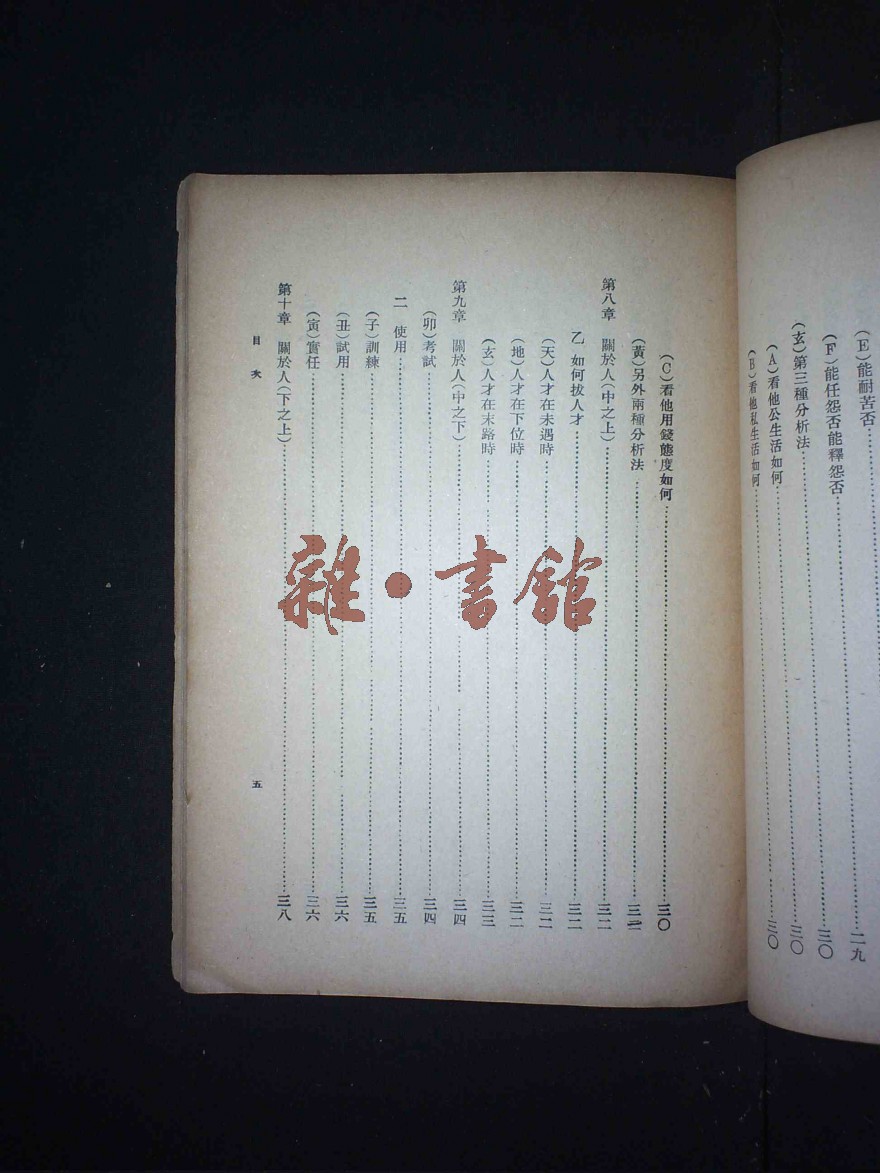 (E)能耐苦否……二九
(F)能任怨否能釋怨否……三〇
(玄)第三種分析法……三〇
(A)看他公生活如何……三〇
(B)看他私生活如何……
(C)看他用錢態度如何……三〇
(黃)另外兩種分析法……
第八章 關於人(中之上)……三二
乙 如何拔人才……三二
(天)人才在未遇時……三二
(地)人才在下位時……三二
(玄)人才在末路時……三三
第九章 關於人(中之下)……三四
(卯)考試……三四
二 使用……三五
(子)訓練……三五
(丑)試用……三六
(寅)實任……三六
第十章 關於人(下之上)……三八
目次
五
雜·書館